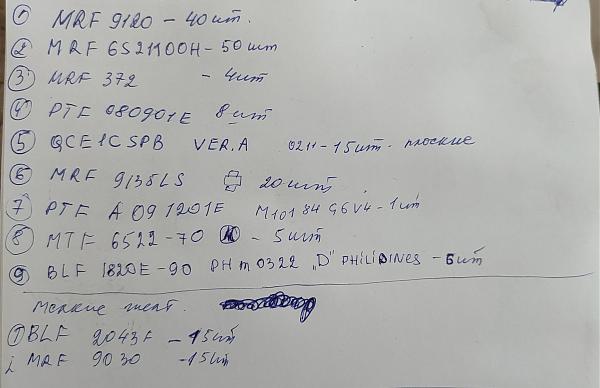 1 MRF 9120 - 40 шт.
2 MRF 6S21100H - 50 шт
3 MRF 372 - 4 шт
4 PTF 080901E 8 шт
5 QCE1CSPB VER.A 0211 - 15 шт. плоские
6 MRF 9135LS 20 шт
7 PTF A 091201E M10184 G6V4 - 1 шт
8 MTF 6522-70 - 5 шт
9 BLF 1820E-90 PHm0322 „D" PHILIPINES - 6 шт
Мелкие желт.
1 BLF 2043F - 15 шт
2 MRF 9030 - 15 шт